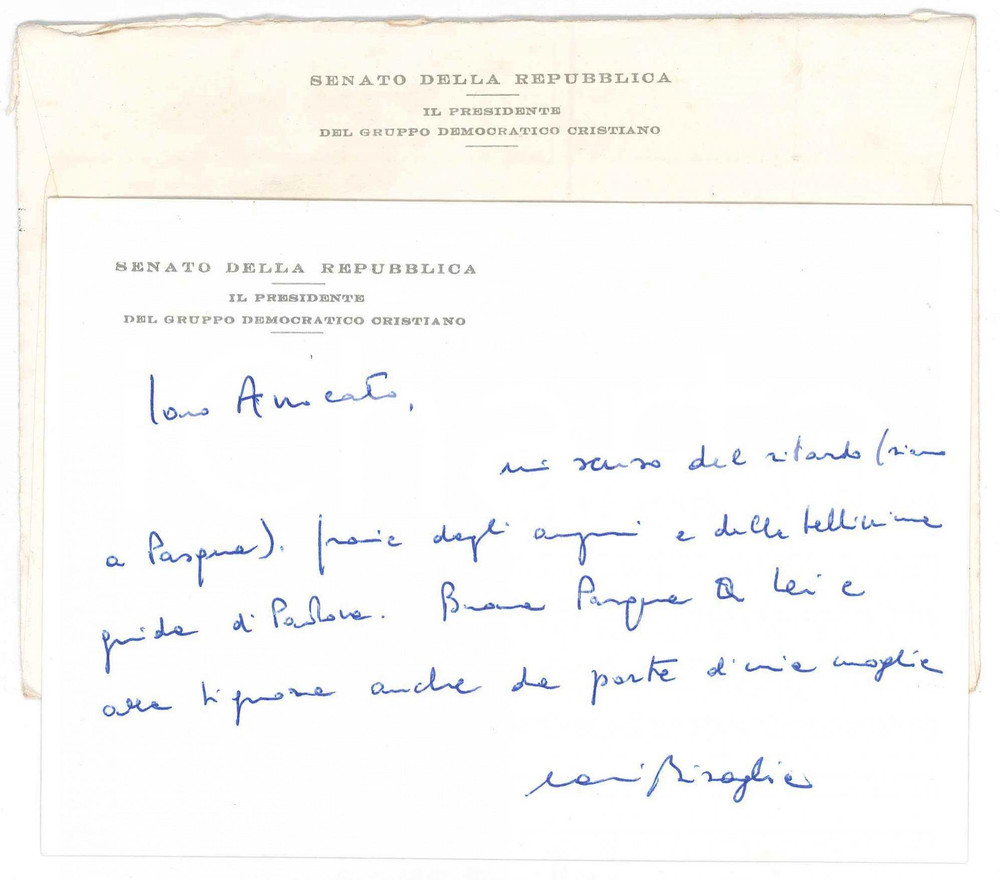 SENATO DELLA REPUBBLICA
IL PRESIDENTE
DEL GRUPPO DEMOCRATICO CRISTIANO
SENATO DELLA REPUBBLICA
IL PRESIDENTE
DEL GRUPPO DEMOCRATICO CRISTIANO
Caro Avvocato,
mi scuso del ritardo (siamo
a Pasqua). Grazie degli auguri e della bellissima
guida di Padova. Buona Pasqua a Lei e
alla Signora anche da parte di mia moglie
Toni Bisaglia